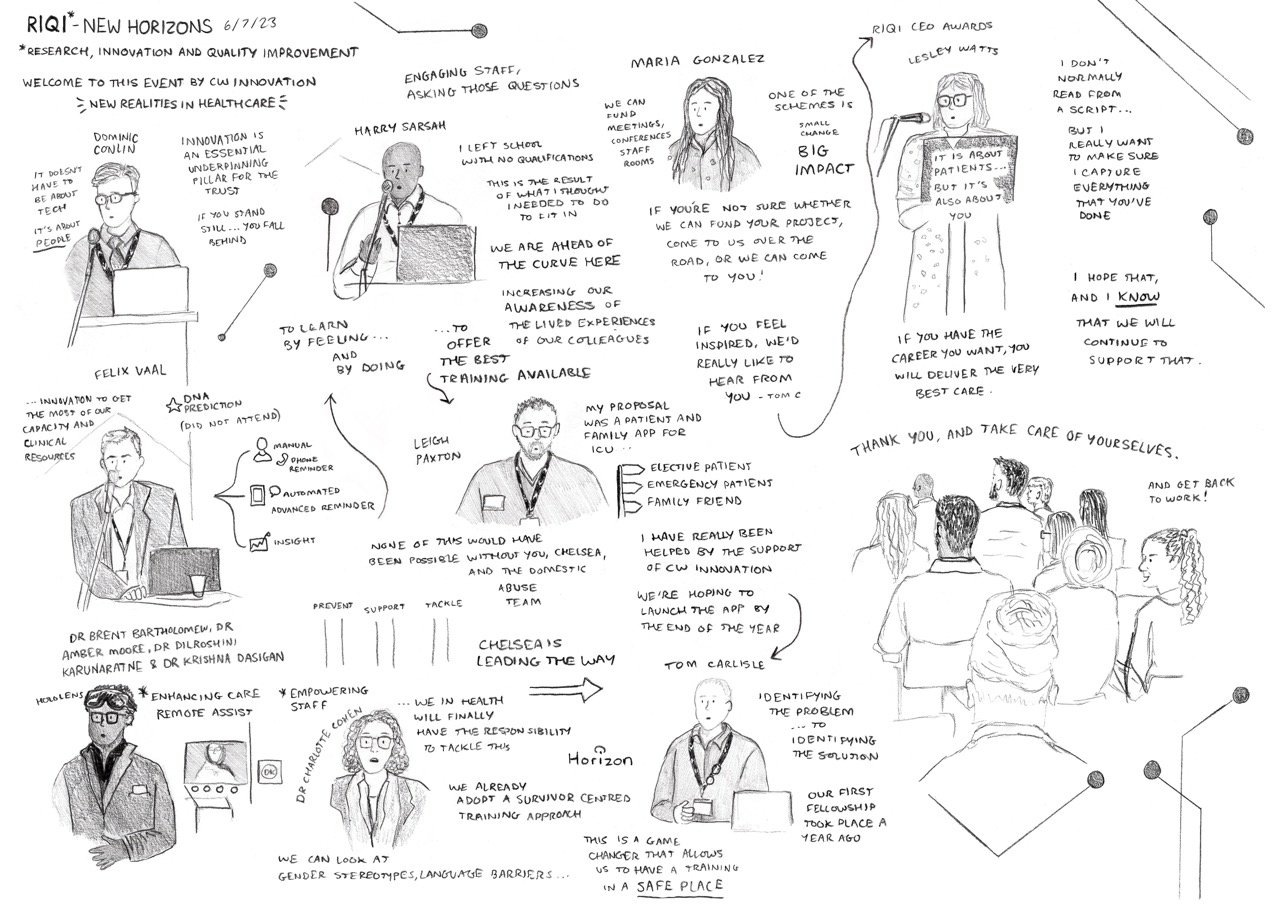 RIQI* - NEW HORIZONS 6/7/23
*RESEARCH, INNOVATION AND QUALITY IMPROVEMENT
WELCOME TO THIS EVENT BY CW INNOVATION
NEW REALITIES IN HEALTHCARE
DOMINIC
CONLIN
IT DOESN'T
HAVE TO
BE ABOUT
TECH
IT'S ABOUT
PEOPLE
INNOVATION IS
AN ESSENTIAL
UNDERPINNING
PILLAR FOR THE
TRUST
IF YOU STAND
STILL... YOU FALL
BEHIND
ENGAGING STAFF,
ASKING THOSE QUESTIONS
HARRY SARSAH
I LEFT SCHOOL
WITH NO QUALIFICATIONS
THIS IS THE RESULT
OF WHAT I THOUGHT
I NEEDED TO DO
TO FIT IN
WE ARE AHEAD OF
THE CURVE HERE
INCREASING OUR
AWARENESS OF
THE LIVED EXPERIENCES
OF OUR COLLEAGUES
MARIA GONZALEZ
WE CAN
FUND
MEETINGS,
CONFERENCES
STAFF
ROOMS
ONE OF THE
SCHEMES IS
SMALL
CHANGE
BIG
IMPACT
IF YOU'RE NOT SURE WHETHER
WE CAN FUND YOUR PROJECT,
COME TO US OVER THE
ROAD, OR WE CAN COME
TO YOU!
IF YOU FEEL
INSPIRED, WE'D
REALLY LIKE TO
HEAR FROM
YOU - TOM C
RIQI CEO AWARDS
LESLEY WATTS
IT IS ABOUT
PATIENTS...
BUT IT'S
ALSO ABOUT
YOU
I DON'T
NORMALLY
READ FROM
A SCRIPT...
BUT I
REALLY WANT
TO MAKE SURE
I CAPTURE
EVERYTHING
THAT YOU'VE
DONE
I HOPE THAT,
AND I KNOW
THAT WE WILL
CONTINUE TO
SUPPORT THAT.
IF YOU HAVE THE
CAREER YOU WANT, YOU
WILL DELIVER THE VERY
BEST CARE.
THANK YOU, AND TAKE CARE OF YOURSELVES.
AND GET BACK
TO WORK!
FELIX VAAL
... INNOVATION TO GET
THE MOST OF OUR
CAPACITY AND
CLINICAL
RESOURCES
DNA
PREDICTION
(DID NOT ATTEND)
MANUAL
PHONE
REMINDER
AUTOMATED
ADVANCED REMINDER
INSIGHT
TO LEARN
BY FEELING...
AND
BY DOING
...TO
OFFER
THE BEST
TRAINING AVAILABLE
LEIGH
PAXTON
MY PROPOSAL
WAS A PATIENT AND
FAMILY APP FOR
ICU ..
ELECTIVE PATIENT
EMERGENCY PATIENT
FAMILY FRIEND
I HAVE REALLY BEEN
HELPED BY THE SUPPORT
OF CW INNOVATION
WE'RE HOPING TO
LAUNCH THE APP BY
THE END OF THE YEAR
NONE OF THIS WOULD HAVE
BEEN POSSIBLE WITHOUT YOU, CHELSEA,
AND THE DOMESTIC
ABUSE
TEAM
PREVENT SUPPORT TACKLE
CHELSEA IS
LEADING THE WAY
DR BRENT BARTHOLOMEW, DR
AMBER MOORE, DR DILROSHINI
KARUNARATNE & DR KRISHNA DASIGAN
HOLOLENS
*ENHANCING CARE
REMOTE ASSIST
OK
*EMPOWERING
STAFF
DR CHARLOTTE COHEN
...WE IN HEALTH
WILL FINALLY
HAVE THE RESPONSIBILITY
TO TACKLE THIS
WE ALREADY
ADOPT A SURVIVOR CENTRED
TRAINING APPROACH
WE CAN LOOK AT
GENDER STEREOTYPES, LANGUAGE BARRIERS...
Horizon
TOM CARLISLE
IDENTIFYING
THE PROBLEM
... TO
IDENTIFYING
THE SOLUTION
OUR FIRST
FELLOWSHIP
TOOK PLACE A
YEAR AGO
THIS IS A GAME
CHANGER THAT ALLOWS
US TO HAVE A TRAINING
IN A SAFE PLACE